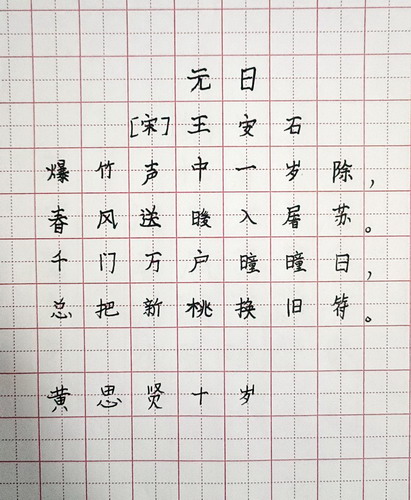 元日
[宋]王安石
爆竹声中一岁除，
春风送暖入屠苏。
千门万户曈曈日，
总把新桃换旧符。
黄思贤十岁